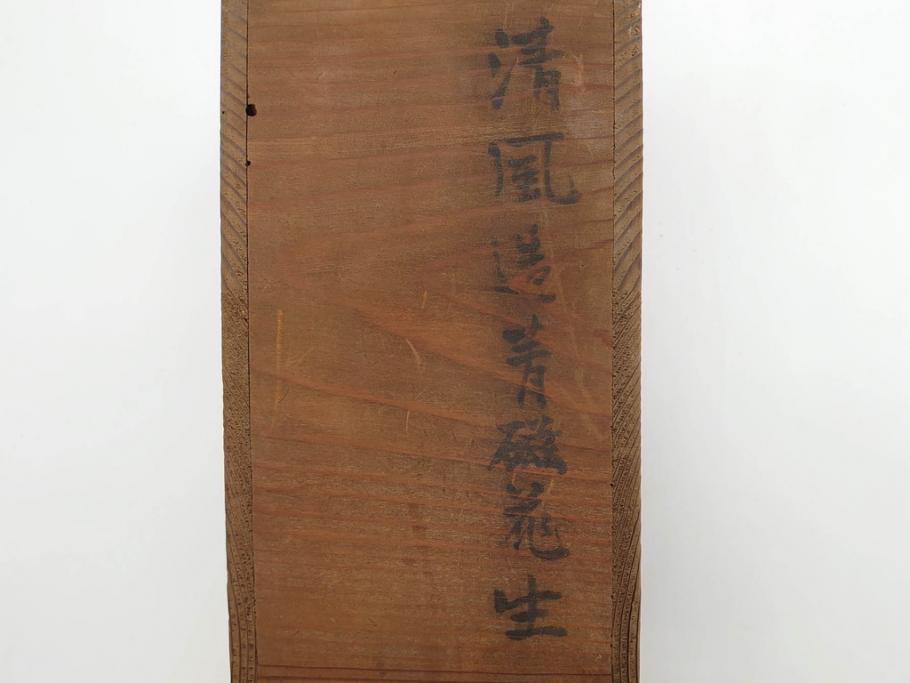 清風造青磁花生